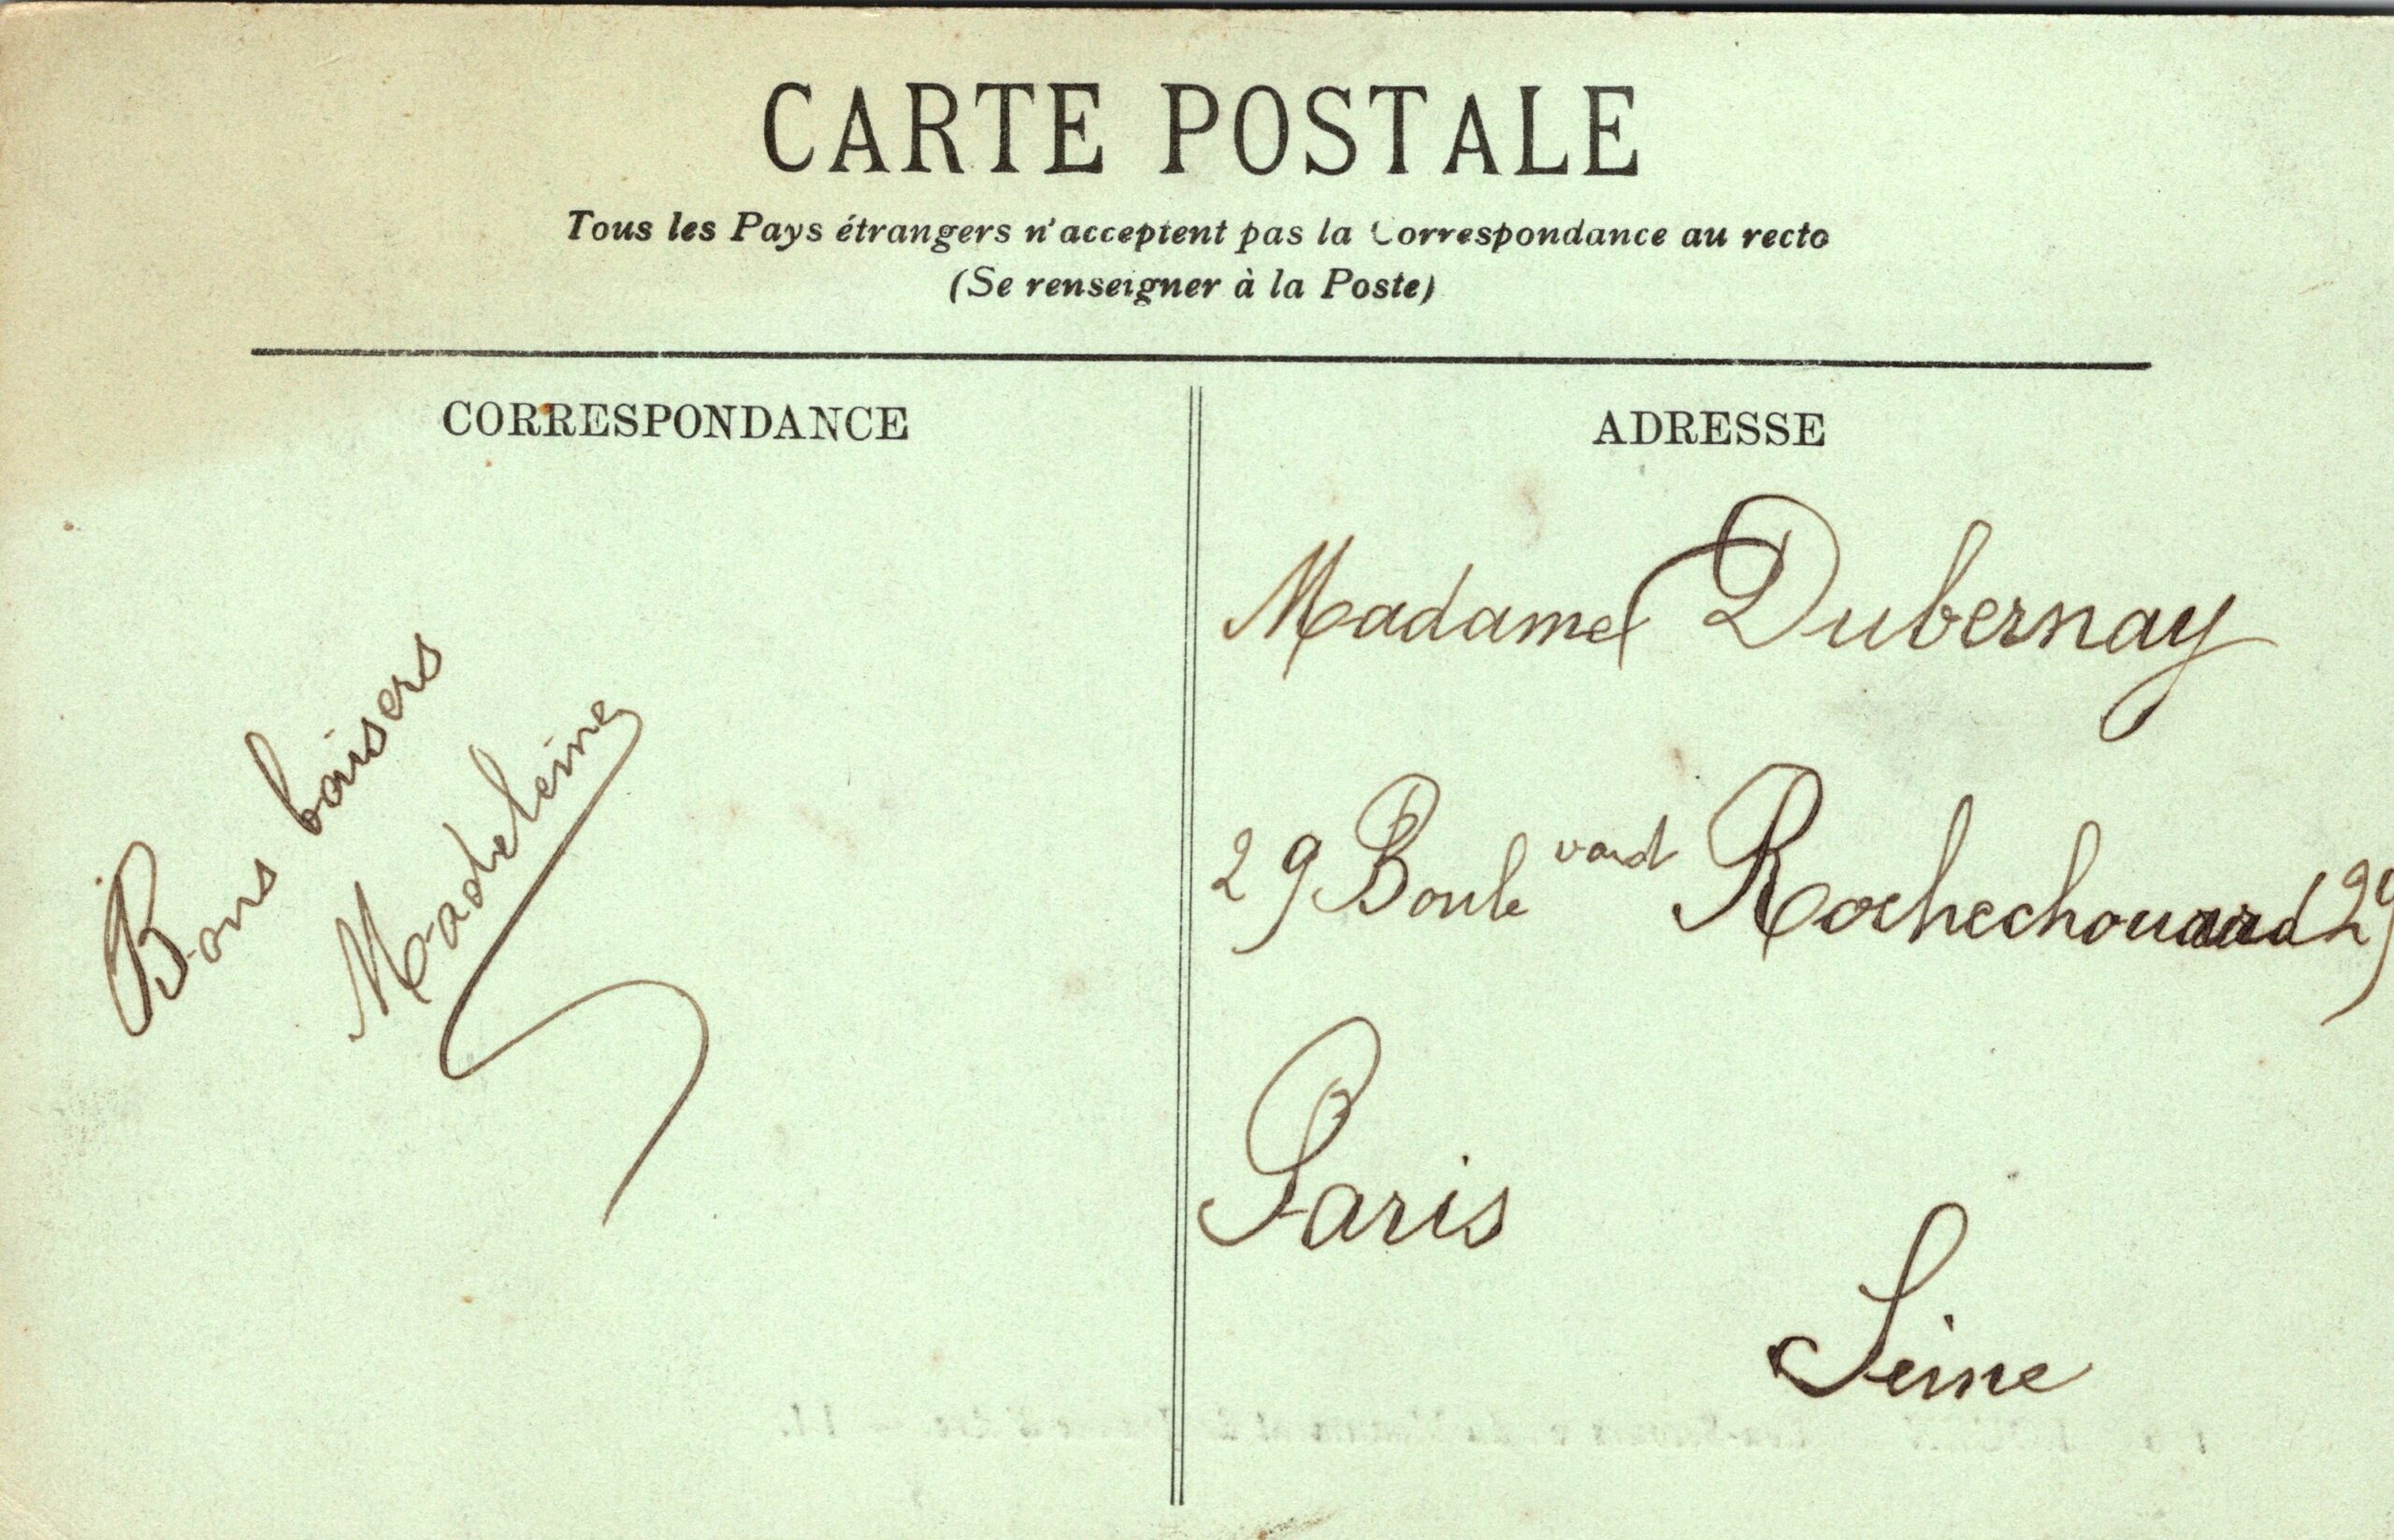 CARTE POSTALE
Tous les Pays étrangers n'acceptent pas la Correspondance au recto
(Se renseigner à la Poste)
CORRESPONDANCE
Bons baisers
Madeleine
ADRESSE
Madame Dubernay
29 Boulevard Rochechouard 29
Paris
Seine